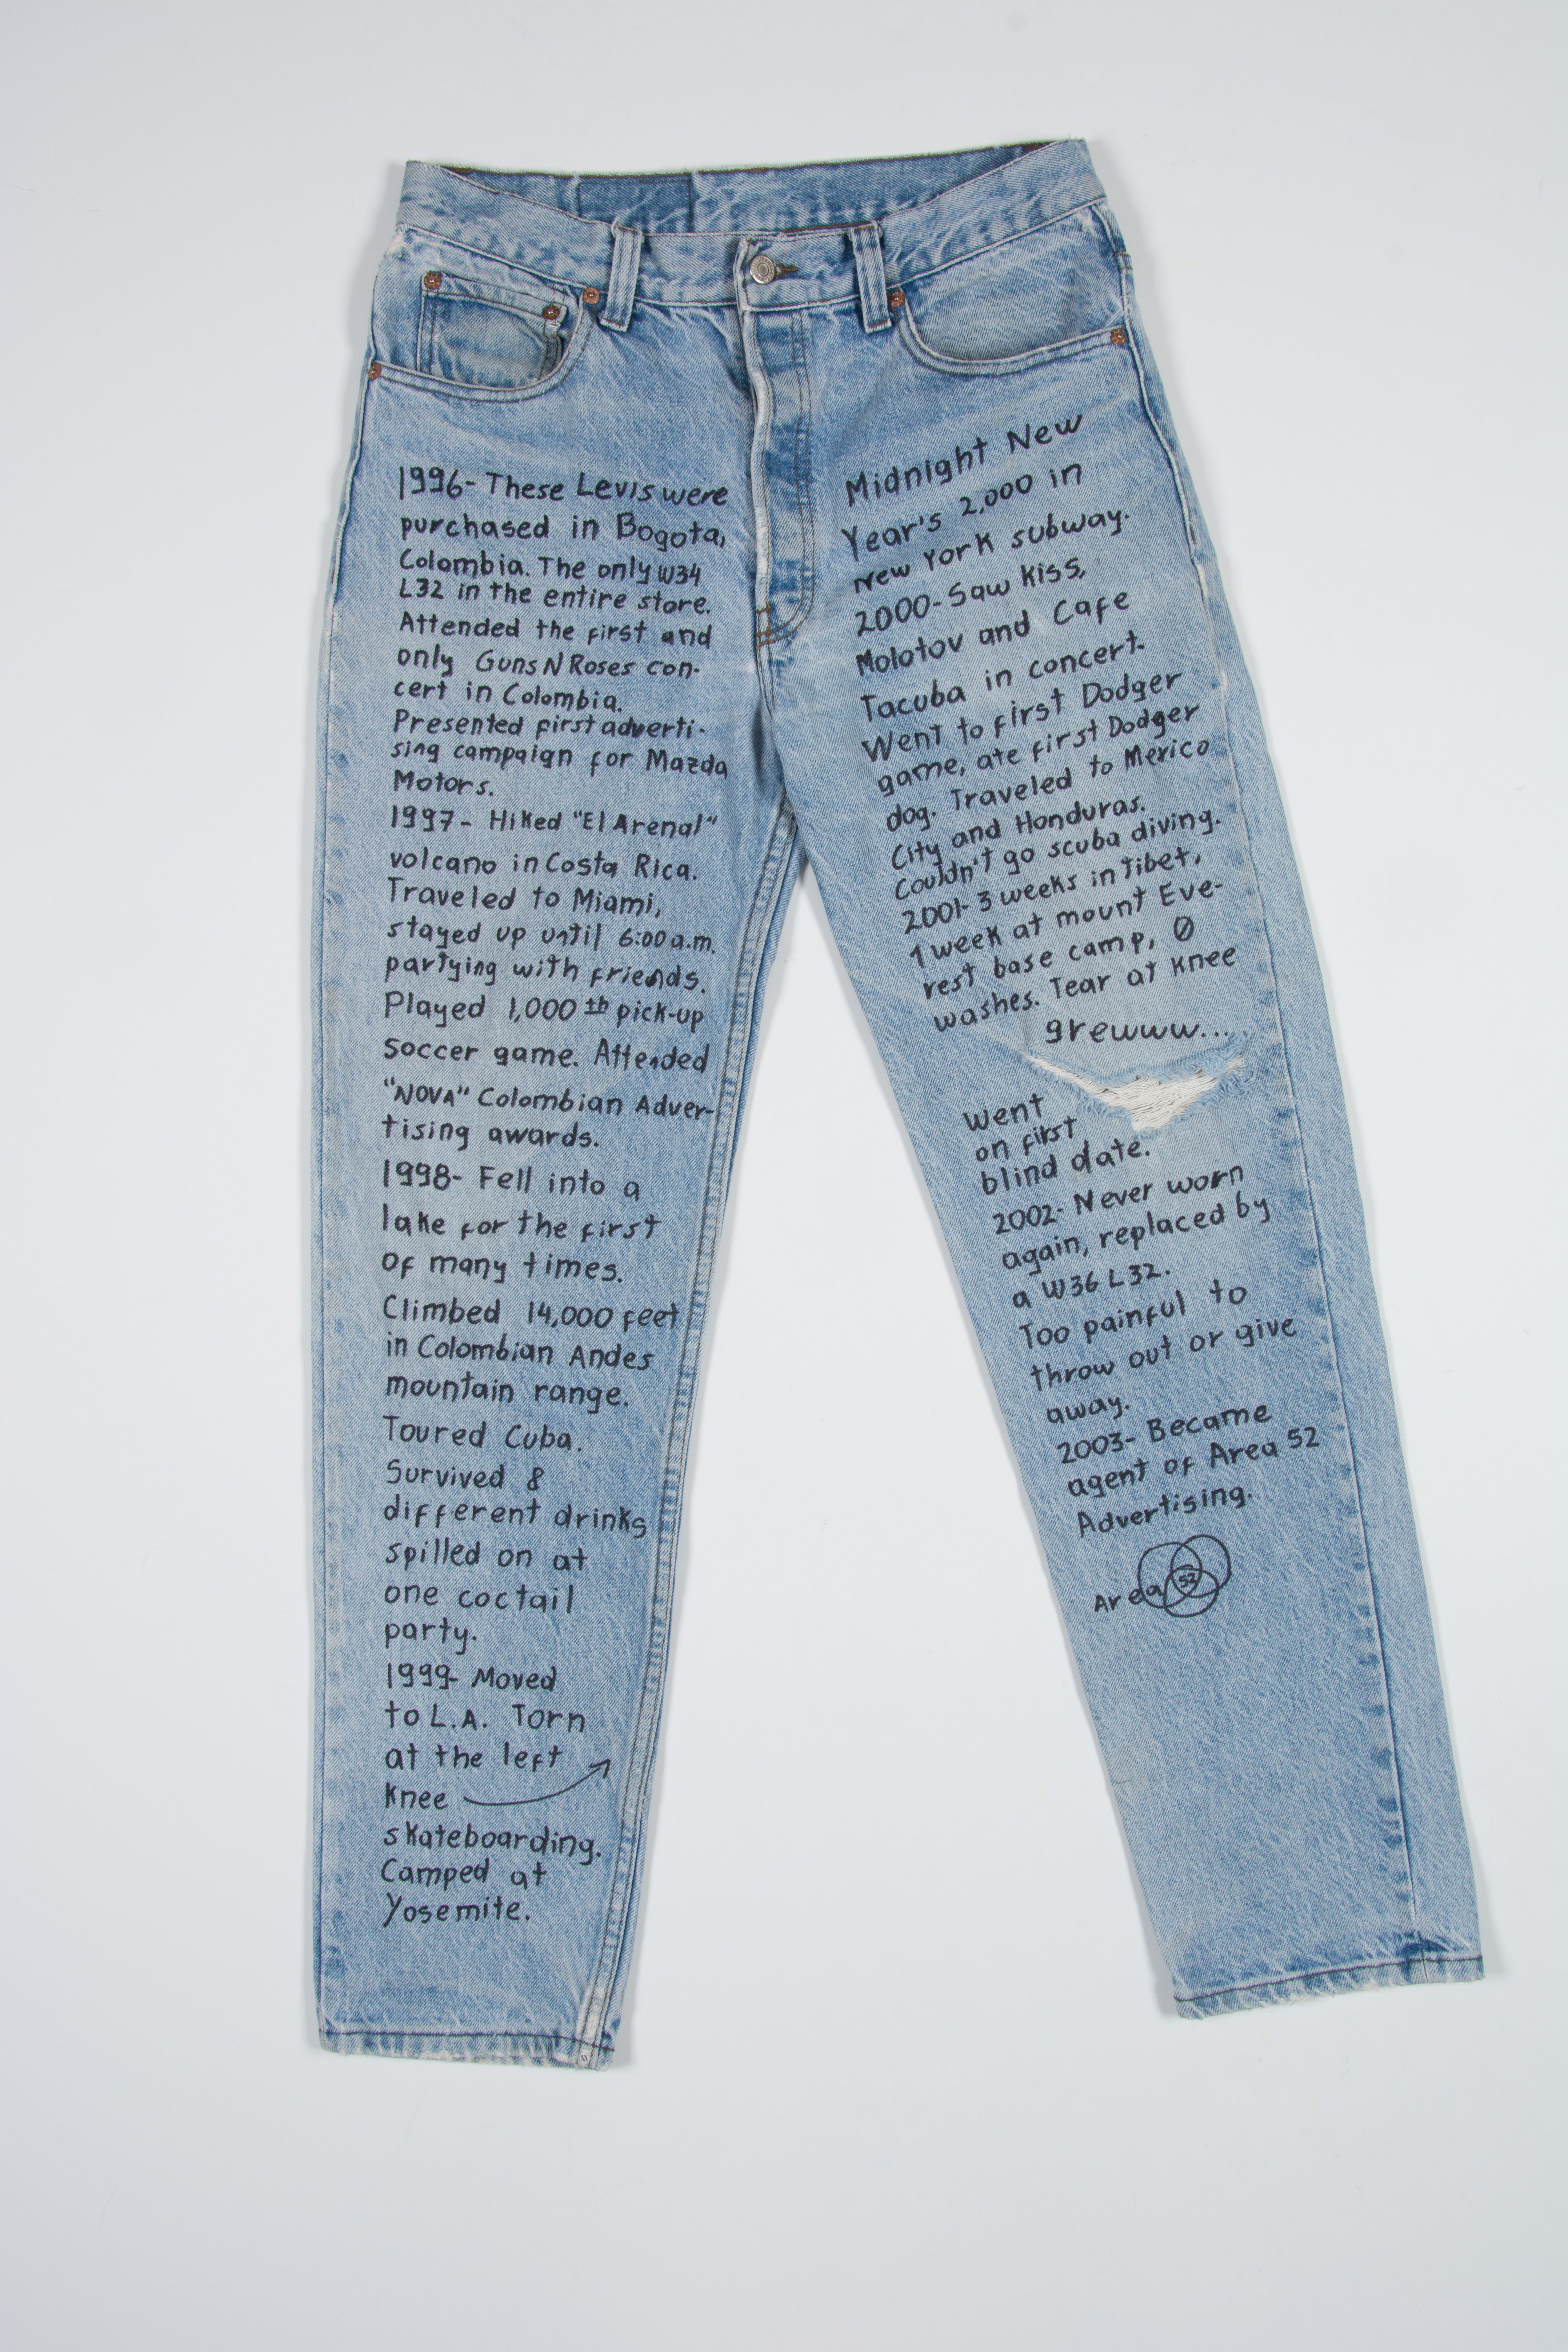 1996- These Levis were
purchased in Bogota,
Colombia. The only W34
L32 in the entire store.
Attended the first and
only Guns N Roses con-
cert in Colombia.
Presented first adverti-
sing campaign for Mazda
Motors.
1997- Hiked "El Arenal"
volcano in Costa Rica.
Traveled to Miami,
stayed up until 6:00 a.m.
partying with friends.
Played 1,000th pick-up
soccer game. Attended
"NOVA" Colombian Adver-
tising awards.
1998- Fell into a
lake for the first
of many times.
Climbed 14,000 feet
in Colombian Andes
mountain range.
Toured Cuba.
Survived 8
different drinks
spilled on at
one coctail
party.
1999- Moved
to L.A. Torn
at the left
knee
skateboarding.
Camped at
Yosemite.
Midnight New
Year's 2,000 in
New York subway.
2000- Saw Kiss,
Molotov and Cafe
Tacuba in concert.
Went to first Dodger
game, ate first Dodger
dog. Traveled to Mexico
City and Honduras.
Couldn't go scuba diving.
2001- 3 weeks in Tibet,
1 week at mount Eve-
rest base camp, 0
washes. Tear at knee
grewww...
Went
on first
blind date.
2002- Never worn
again, replaced by
a W36 L32.
Too painful to
throw out or give
away.
2003- Became
agent of Area 52
Advertising.
Area 52